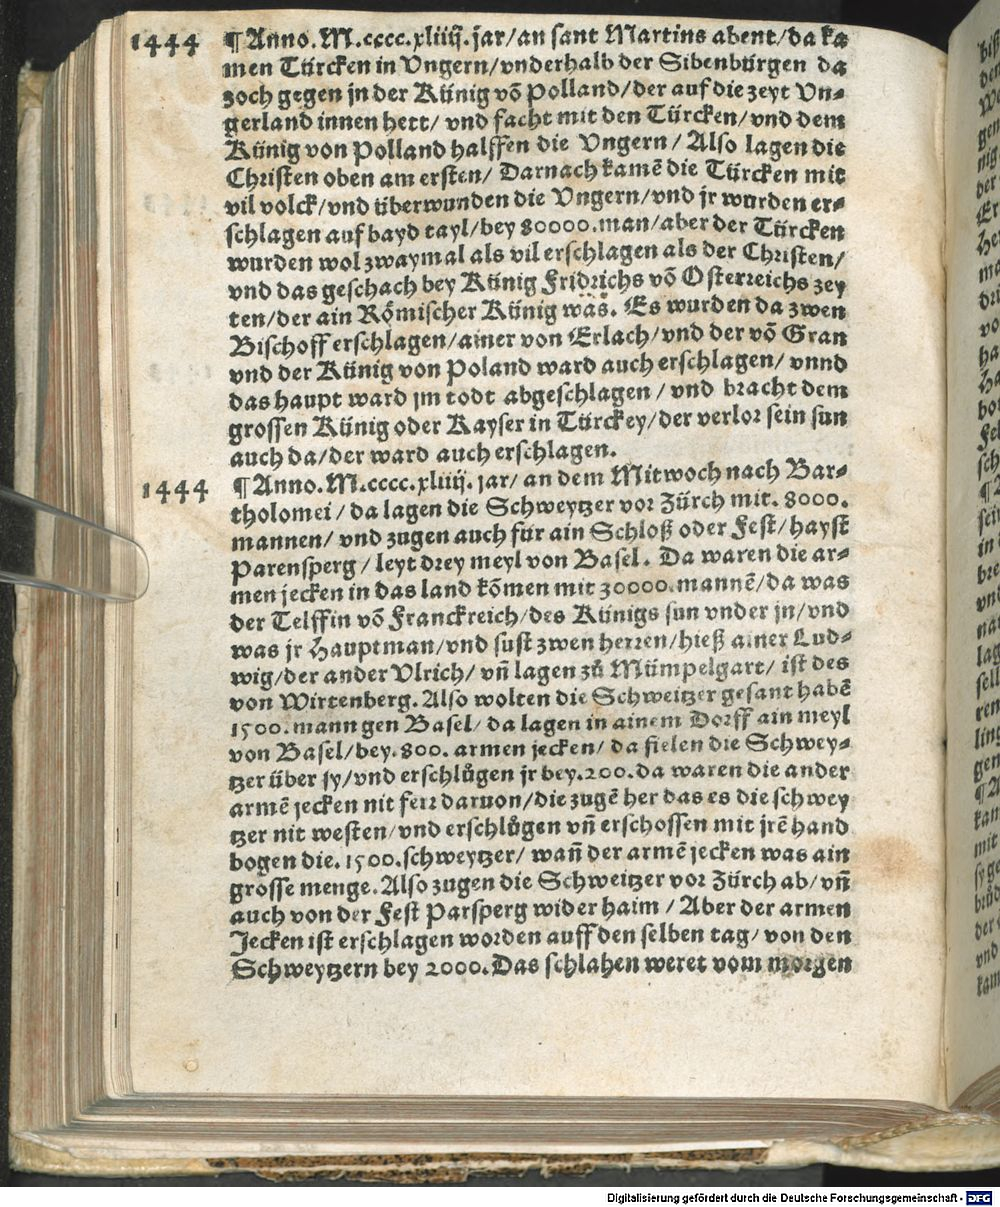 1444 ¶ Anno. M.cccc.xliiij. jar/an sant Martins abent/da ka
men Türcken in Vngern/vnderhalb der Sibenbürgen da
zoch gegen jn der Künig võ Polland/der auf die zeyt Vn⸗
gerland innen hett/ vnd facht mit den Türcken/vnd dem
Künig von Polland halffen die Vngern/ Also lagen die
Christen oben am ersten/ Darnach kamẽ die Türcken mit
vil volck/vnd überwunden die Vngern/vnd jr wurden er⸗
schlagen auf bayd tayl/bey 80000.man/aber der Türcken
wurden wol zwaymal als vil erschlagen als der Christen/
vnd das geschach bey Künig Fridrichs võ Osterreichs zey
ten/der ain Römischer Künig was. Es wurden da zwen
Bischoff erschlagen/ainer von Erlach/vnd der võ Gran
vnd der Künig von Poland ward auch erschlagen/ vnnd
das haupt ward jm todt abgeschlagen/ vnd bracht dem
grossen Künig oder Kayser in Türckey/der verlor sein sun
auch da/der ward auch erschlagen.
1444 ¶ Anno. M.cccc.xliiij. jar/ an dem Mitwoch nach Bar⸗
tholomei/ da lagen die Schweytzer vor Zürch mit. 8000.
mannen/ vnd zugen auch für ain Schloß oder Fest/hayst
Parensperg/ leyt drey meyl von Basel. Da waren die ar⸗
men jecken in das land kõmen mit 30000.mannẽ/da was
der Telffin võ Franckreich/des Künigs sun vnder jn/vnd
was jr Hauptman/vnd sust zwen herren/hieß ainer Lud⸗
wig/der ander Vlrich/ vñ lagen zů Mümpelgart/ ist des
von Wirtenberg. Also wolten die Schweitzer gesant habẽ
1500.mann gen Basel/ da lagen in ainem Dorff ain meyl
von Basel/bey. 800. armen jecken/ da fielen die Schwey⸗
tzer über sy/vnd erschlůgen jr bey.200.da waren die ander
armẽ jecken nit ferr daruon/die zugẽ her das es die schwey
tzer nit westen/vnd erschlůgen vñ erschossen mit jrẽ hand
bogen die. 1500.schweytzer/ wañ der armẽ jecken was ain
grosse menge. Also zugen die Schweitzer vor Zürch ab/vñ
auch von der Fest Parsperg wider haim/ Aber der armen
Jecken ist erschlagen worden auff den selben tag/ von den
Schweytzern bey 2000. Das schlahen weret vom morgen
Digitalisierung gefördert durch die Deutsche Forschungsgemeinschaft - DFG